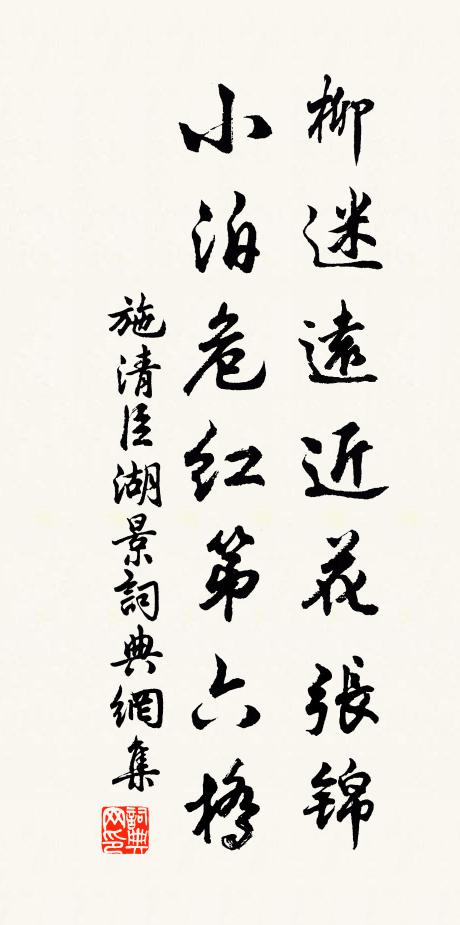 柳迷遠近花張錦
小泊危紅第六橋
施清臣湖景詞典網集
詞典网印